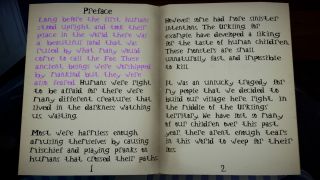 Preface
Long before the first human
stood upright and took their
place in the world there was
a beautiful land that was
ruled by what many would
come to call the Fae These
ancient beings were worshipped
by mankind but they were
also feared Humans were right
to be afraid for there were
many different creatures that
lived in the darkness watching
us waiting.
Most were harmless enough
amusing themselves by causing
mischief and playing pranks on
humans that crossed their paths
1
However some had more sinister
intentions. The Urklings for
example have developed a liking
for the taste of human children.
These monsters are small
unnaturally fast and impossible
to kill.
It was an unlucky tragedy for
my people that we decided to
build our village here right in
the middle of the Urklings
territory. We have lost so many
of our children over this past
year there aren't enough tears
in this world to weep for their
loss
2